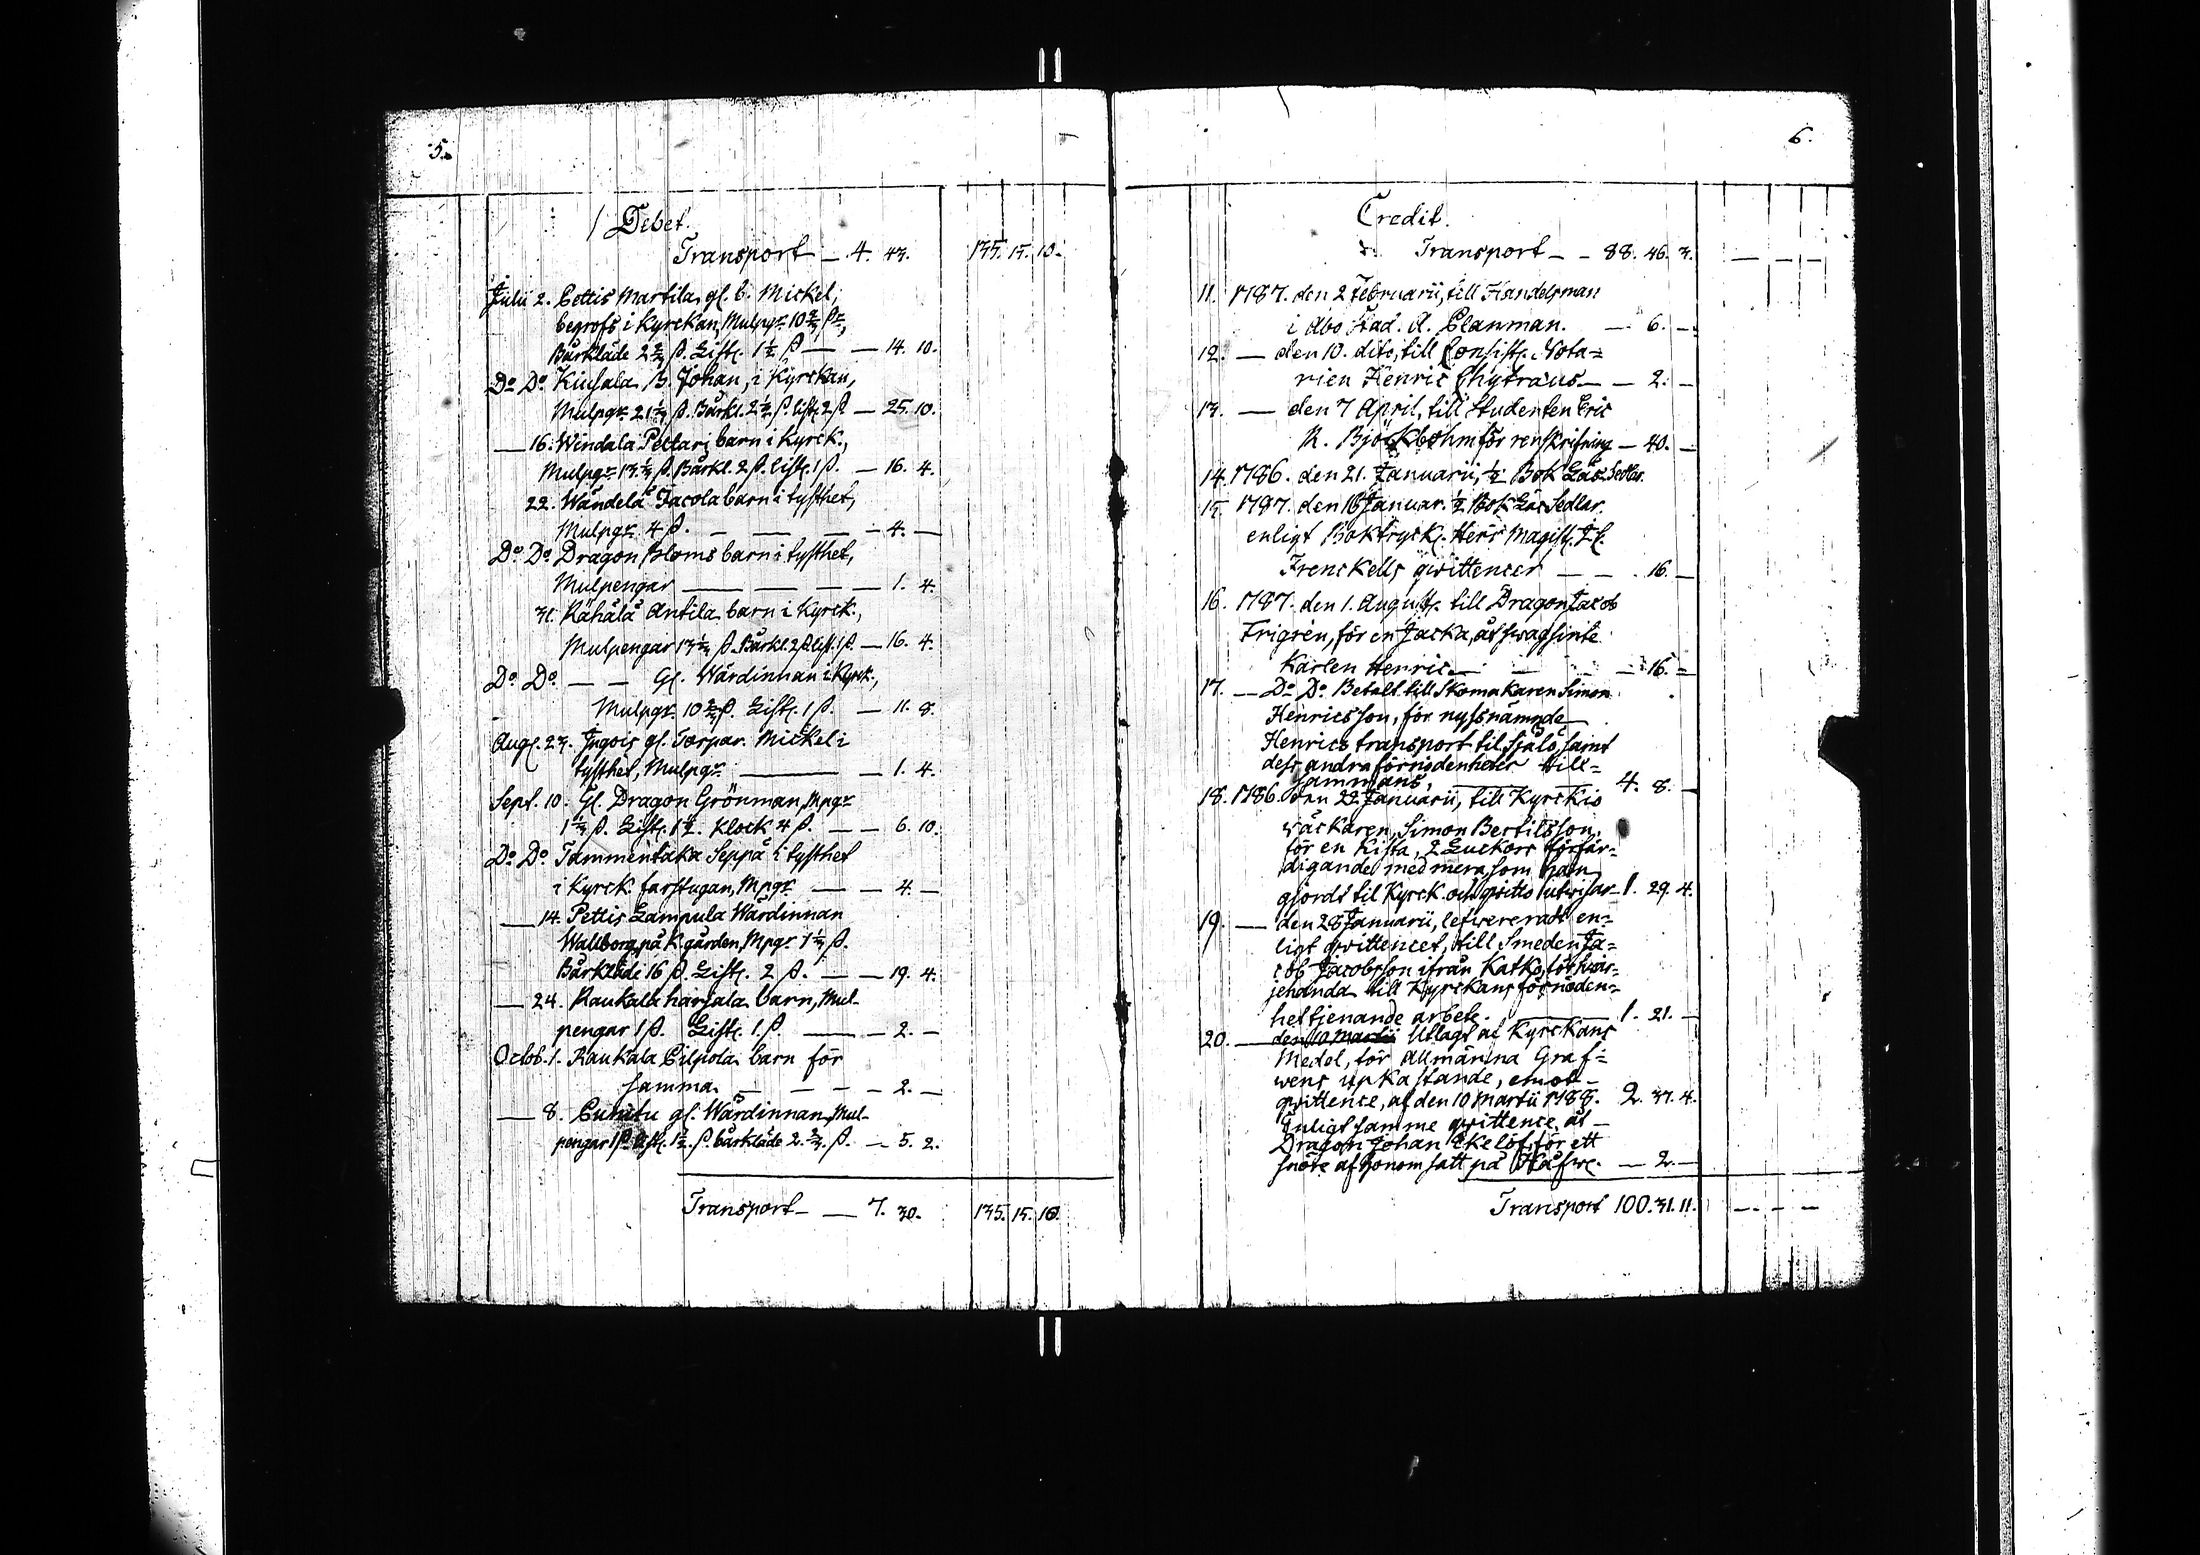 5.
Debet.
Transport — 4. 43. 135. 15. 10.
Julii 2. Pettis Martila, gl. b. Mickel,
begrofs i Kyrckan, Mulpgr 10 2/3 ßr,
Bårkläde 2 2/3 ß. Listr. 1 1/2 ß — — 14. 10.
Do Do Kiusala B. Johan, i Kyrckan,
Mulpgr 21 1/3 ß. Bårkl. 2 1/2 ß. listr 2 ß — 25. 10.
— 16. Windala Pettarj barn i Kyrck.,
Mulpgr 13 1/3 ß. Bårkl. 2 ß. listr. 1 ß. — 16. 4.
22. Wändelä Jacola barn i tysthet,
Mulpgr 4 ß. — — — 4. —
Do Do Dragon Bloms barn i tysthet,
Mulpengar — — — — 1. 4.
31. Rähälä Antila barn i Kyrck.,
Mulpengar 13 1/3 ß. Bårkl. 2 ß. list. 1 ß. — 16. 4.
Do Do — — Gl. Wärdinnan i Kyrck.,
Mulpgr. 10 2/3 ß. Listr. 1 ß. — 11. 8.
Augl. 23. Jngois gl. Torpar. Mickel i
tysthet, Mulpgr. — — 1. 4.
Sept. 10. Gl. Dragon Grönman, Mpgr
1 1/3 ß. Listr. 1 1/2. Klock 4 ß. — — 6. 10.
Do Do Tammentaka Seppä i tysthet
i Kyrck. farstugan, Mpgr — — 4. —
— 14. Pettis Lampula Wärdinnan
Wallborg, på K. gården, Mpgr 1 1/3 ß.
Bårkläde 16 ß. Listr. 2 ß. — — 19. 4.
— 24. Raukala harjala barn, Mul-
pengar 1 ß. Listr. 1 ß. — — 2. —
Octob. 1. Raukala Pilpola barn för
samma. — — — — 2. —
— 8. gl. Wärdinnan, Mul-
pengar 1 ß. listr. 1 1/2. ß. bårkläde 2. 2/3. ß. — 5. 2.
Transport — — 7. 30. 135. 15. 10.
6.
Credit.
Transport — — 88. 46. 3. — — — —
11. 1787. den 2 Februarii, till Handelsman
i Åbo Stad. A. Planman. — 6. —
12. — den 10. dito, till Consist. Nota=
rien Henric Chytræus — — 2. —
13. — den 7 April, till Studenten Eric
R. Björkbohm för renskrifning — 40. —
14. 1786. den 21. Januarii, 1/2 Bok Läs Sedlar.
15. 1787. den 16 Januar. 1/2 Bok Läs Sedlar.
enligt Boktryck. Herr Magist. J. C.
Frenckells qvittencer — — 16. —
16. 1787. den 1. August. till Dragon Jacob
Frigrén, för en Jacka, åt swagsinte
Karlen Henric — — — — 16. =
17. — Do Do Betalt till Skomakaren Simon
Henricsson, för nyssnämnde
Henrics transport til Själö, samt
dess andra förnödenheter till=
sammans. — 4. 8. —
18. 1786. den 22 Januarii, till Kyrckio
wäckaren, Simon Bertilsson,
för en Kista, 2 Luckors förfär=
digande med mera, som han
gjordt til Kyrck. och qvitto utwisar — 1. 29. 4.
19. — den 28 Januarii, lefwereradt en=
ligt qvittencet, till Smeden Ja=
cob Jacobsson ifrån Katko, för hwar=
jehanda till Kyrckans förnöden=
het tjenande arbete. — 1. 21. —
20. — den 10 Martii Utlagt af Kyrckans
Medel, för Allmänna Graf=
wens upkastande, emot —
qvittence, af den 10 Martii 1788. 2. 37. 4.
Enligt samme qvittence, åt —
Dragon Johan Ekelöf, för ett
snöre af honom satt på Håfwe. — 2. —
Transport 100. 31. 11. — — — —